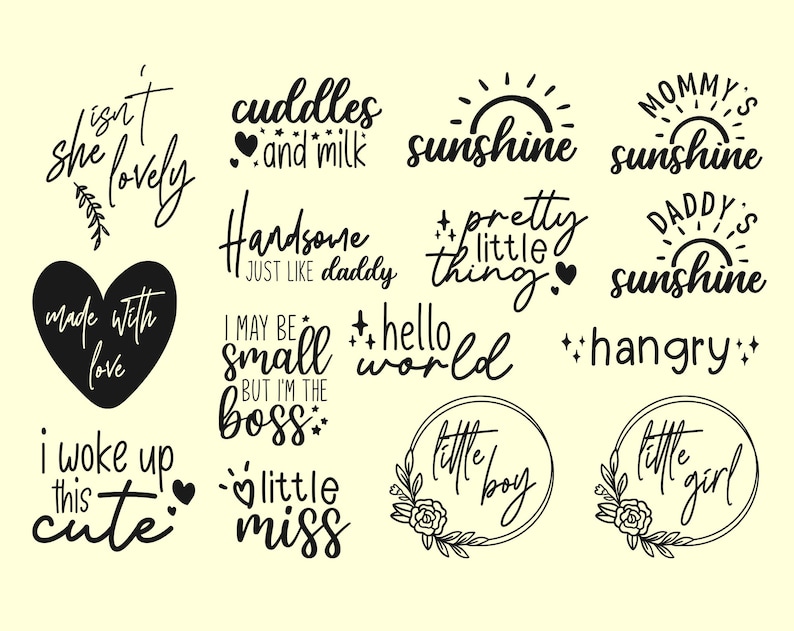 isn't
she lovely
cuddles
and milk
sunshine
MOMMY'S
sunshine
Handsome
JUST LIKE daddy
pretty
little
thing
DADDY'S
sunshine
made with
love
I MAY BE
small
BUT I'M THE
boss
hello
world
hangry
i woke up
this
cute
little
miss
little
boy
little
girl